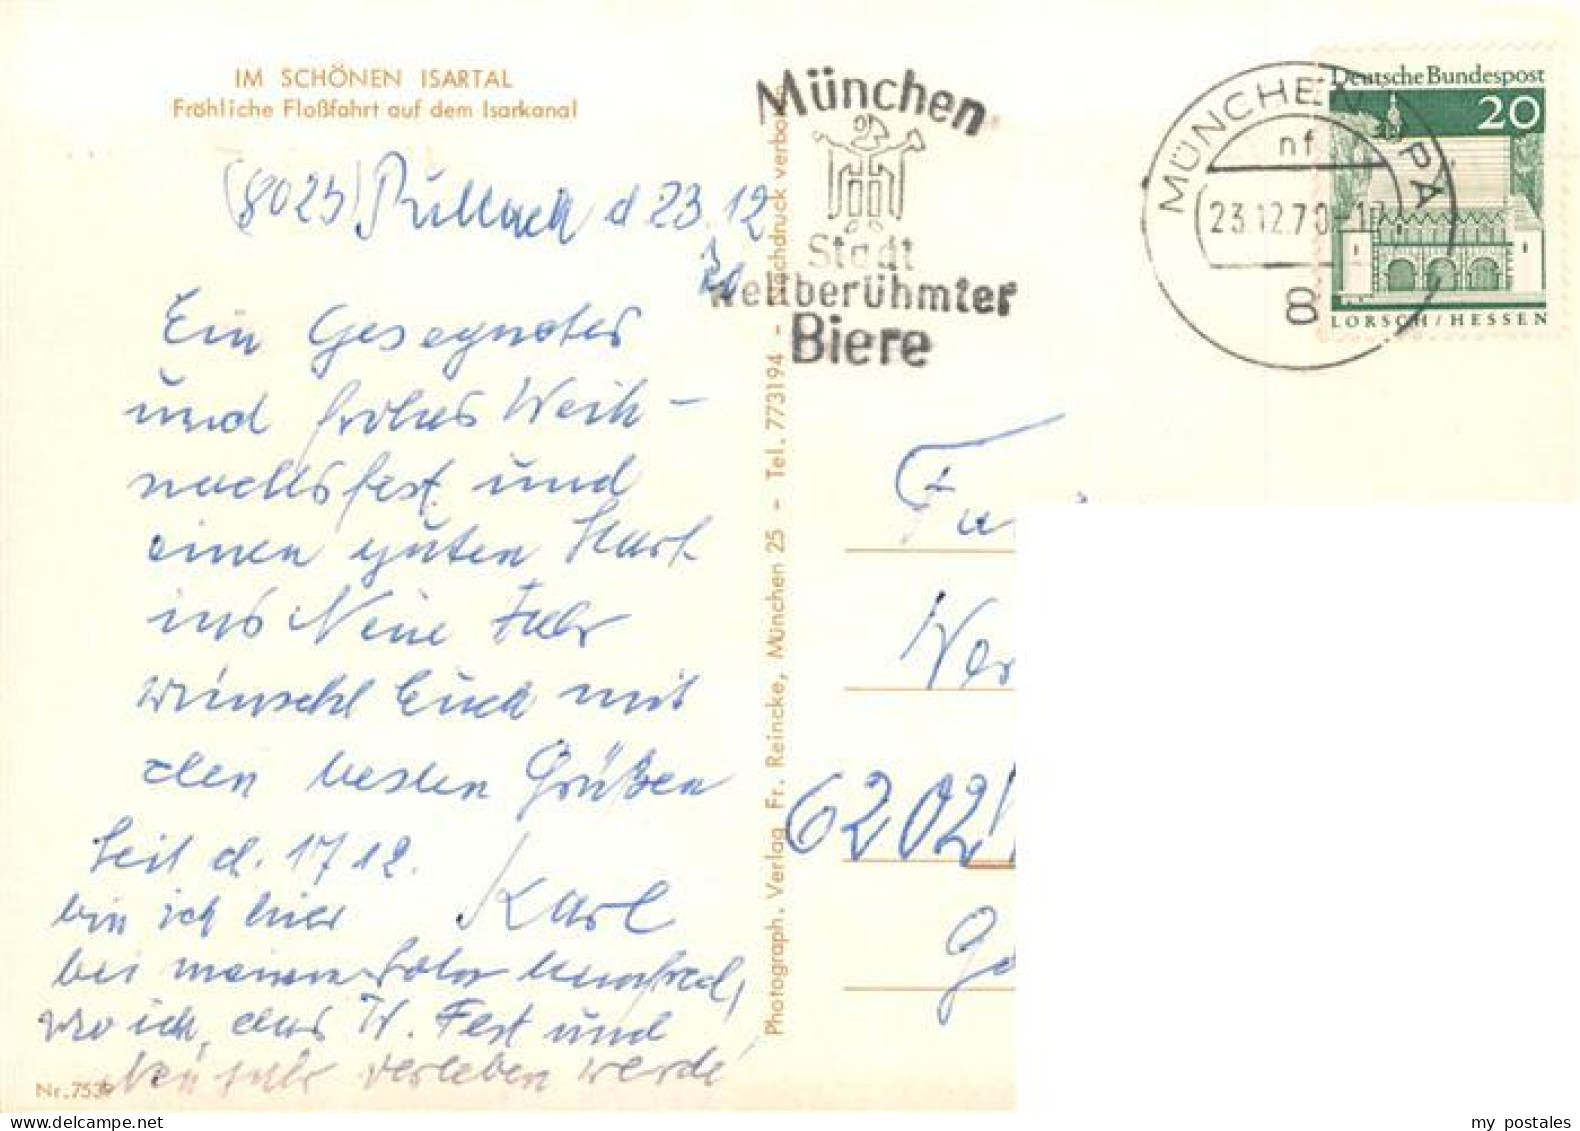 IM SCHÖNEN ISARTAL
Fröhliche Floßfahrt auf dem Isarkanal
(8023) Pullach d 23.12
70
Ein Gesegnetes
und frohes Weih-
nachtsfest und
einen guten Start
ins Neue Jahr
wünscht Euch mit
den besten Grüßen
Karl
Seit d. 17 12.
bin ich hier
bei meinem Sohn Manfred,
wo ich das W. Fest und
Neujahr verleben werde
Nr. 7539
Photograph. Verlag Fr. Reincke, München 25 - Tel. 773194 - Nachdruck verboten
München
Stadt
weltberühmter
Biere
MÜNCHEN PA
nf
23.12.70-17
8
Deutsche Bundespost
20
LORSCH/HESSEN
6202
my postales